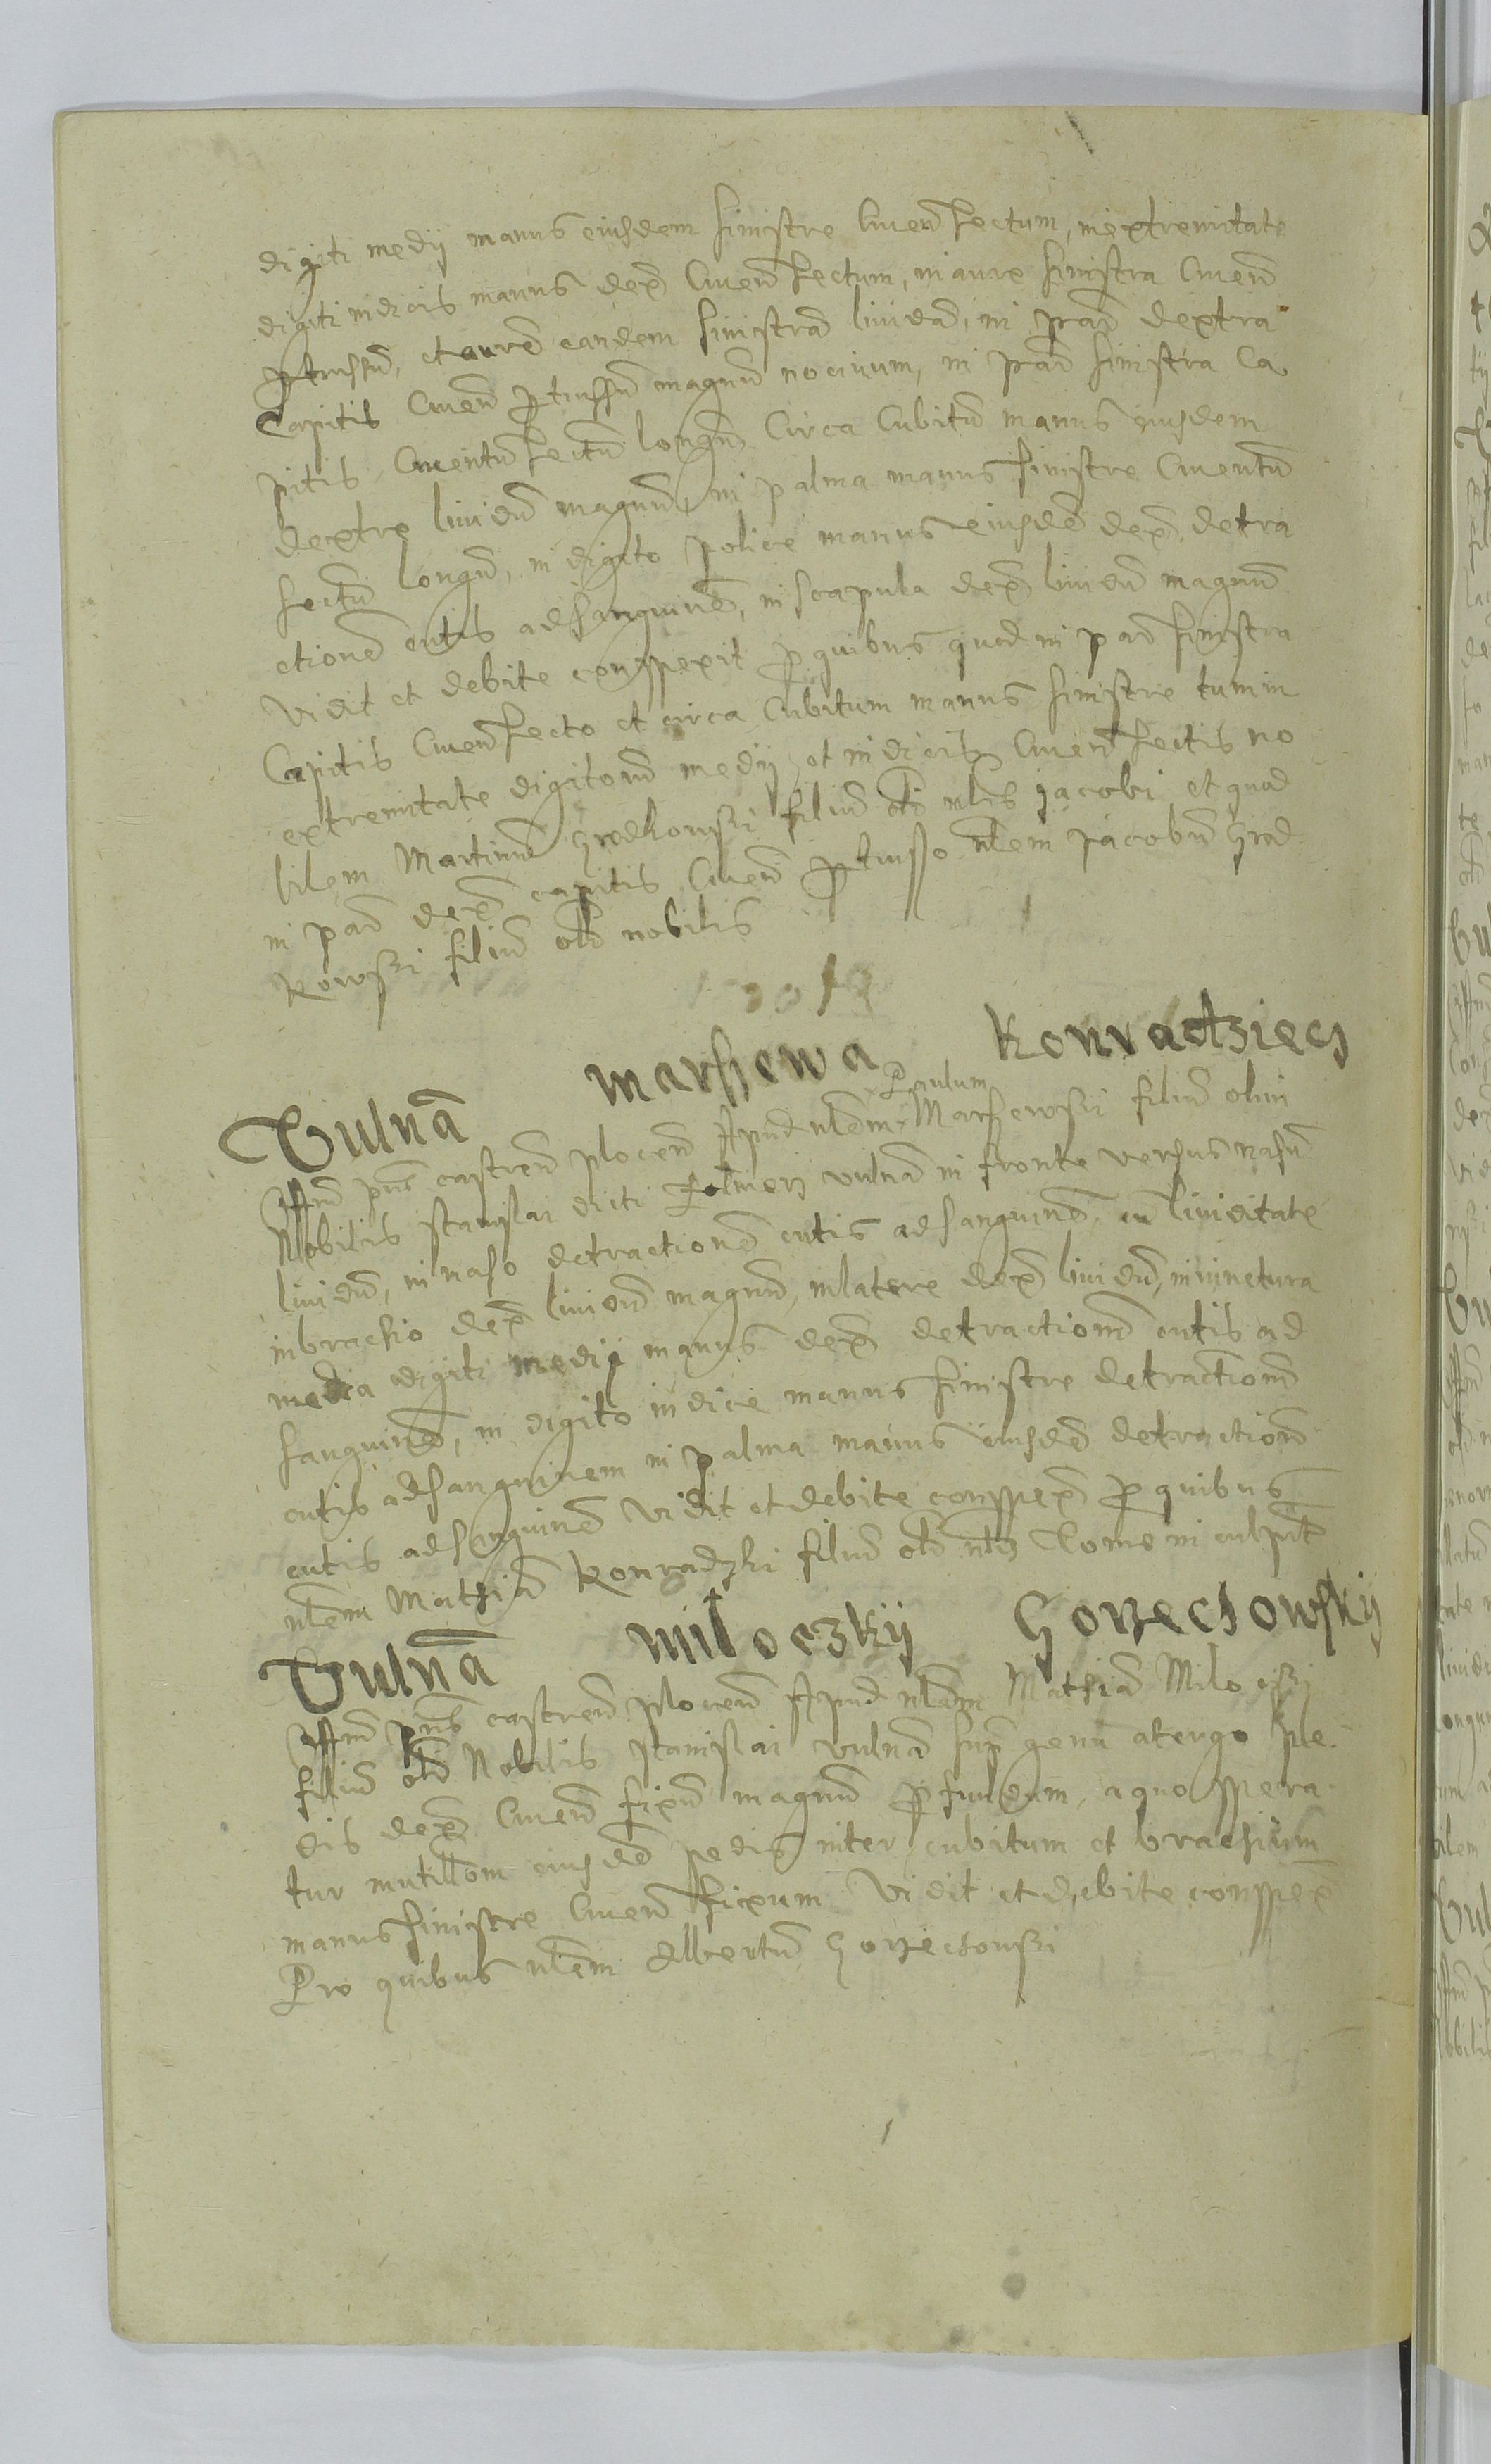 digiti medij manus eiusdem sinistre Cruen sectum, in extremitate
digiti indicis manus dex Cruen sectum, in aure sinistra Cruen
ptrussu, et aure eandem sinistra liuida, in par dextra
Capitis Cruen ptrussu magnu nociuum, in par sinistra Ca
pitis Cruentu sectu longu Circa Cubitu manus eiusdem
dextre liuidu magnu, in palma manus sinistre Cruentu
sectu longu, in digito police manus eiusde dex detra
ctione cutis ad sanguine, in scapula dex liuidu magnu
vidit et debite conspexit p quibus quod in par sinistra
Capitis Cruen secto et circa Cubitum manus sinistre tum in
extremitate digitoru medij et indicis Cruen sectis no
bilem Martinu Grodkowski filiu oli nlis Jacobi et quod
in par dex capitis Cruen ptrusso nlem Jacobu Grod
kowski filiu oli nobilis
Vulna marszewa Konradtziecz
Paulum
pns castren plocen Apud nlem Marszewski filiu olim
Nobilis Stanislai dicti vulna in fronte versus nasu
liuidu, in naso detractione cutis ad sanguine, cu liuiditate
in brachio dex liuidu magnu, in latere dex liuidu, in iunctura
media digiti medij manus dex detractione cutis ad
sanguine, in digito indice manus sinistre detractione
cutis ad sanguinem in palma manus eiusde detractione
cutis ad sanguine vidit et debite conspex p quibus
nlem Mathia Konradzki filiu oli nlis Tome inculpat
Vulna miloczkij Gorzechowskij
pns castren plocen Apud nlem Mathia Miloczki
filiu oli Nobilis Stanislai vulna sup genu a tergo pe
dis dex Cruen fixu magnu pfundum, a quo spera
tur mutillom eiusde pedis inter cubitum et brachium
manus sinistre Cruen fixum vidit et debite conspex
Pro quibus nlem Albertu Gorzechowski